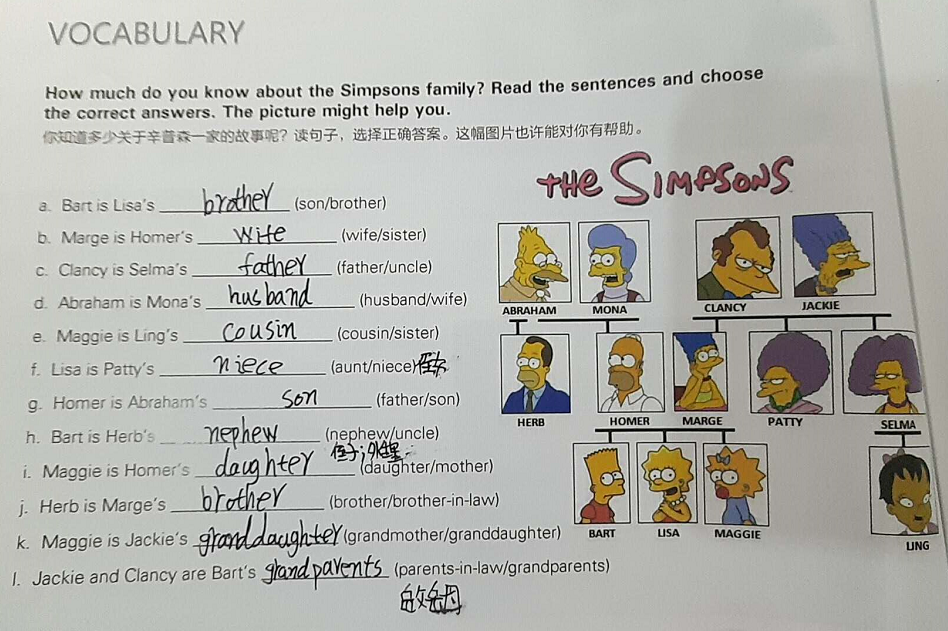 VOCABULARY
How much do you know about the Simpsons family? Read the sentences and choose
the correct answers. The picture might help you.
你知道多少关于辛普森一家的故事呢？读句子，选择正确答案。这幅图片也许能对你有帮助。
THE SIMPSONS
a. Bart is Lisa's brother (son/brother)
b. Marge is Homer's wife (wife/sister)
c. Clancy is Selma's father (father/uncle)
d. Abraham is Mona's husband (husband/wife)
e. Maggie is Ling's cousin (cousin/sister)
f. Lisa is Patty's niece (aunt/niece)侄女
g. Homer is Abraham's son (father/son)
h. Bart is Herb's nephew (nephew/uncle)
侄子；外甥
i. Maggie is Homer's daughter (daughter/mother)
j. Herb is Marge's brother (brother/brother-in-law)
k. Maggie is Jackie's granddaughter (grandmother/granddaughter)
l. Jackie and Clancy are Bart's grandparents (parents-in-law/grandparents)
ABRAHAM MONA CLANCY JACKIE
HERB HOMER MARGE PATTY SELMA
BART LISA MAGGIE LING